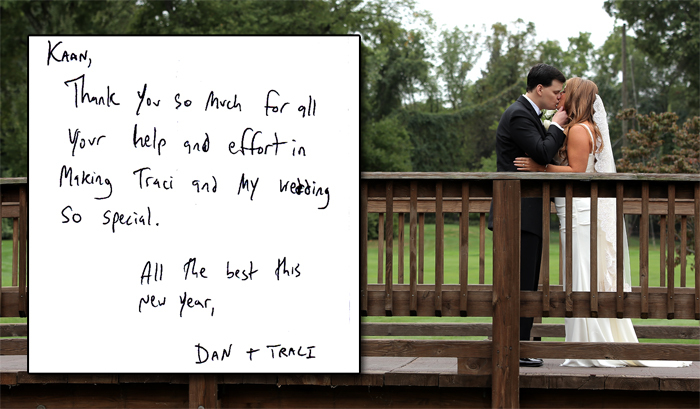 Kaan,
Thank you so much for all
your help and effort in
making Traci and my wedding
so special.
All the best this
new year,
Dan + Traci